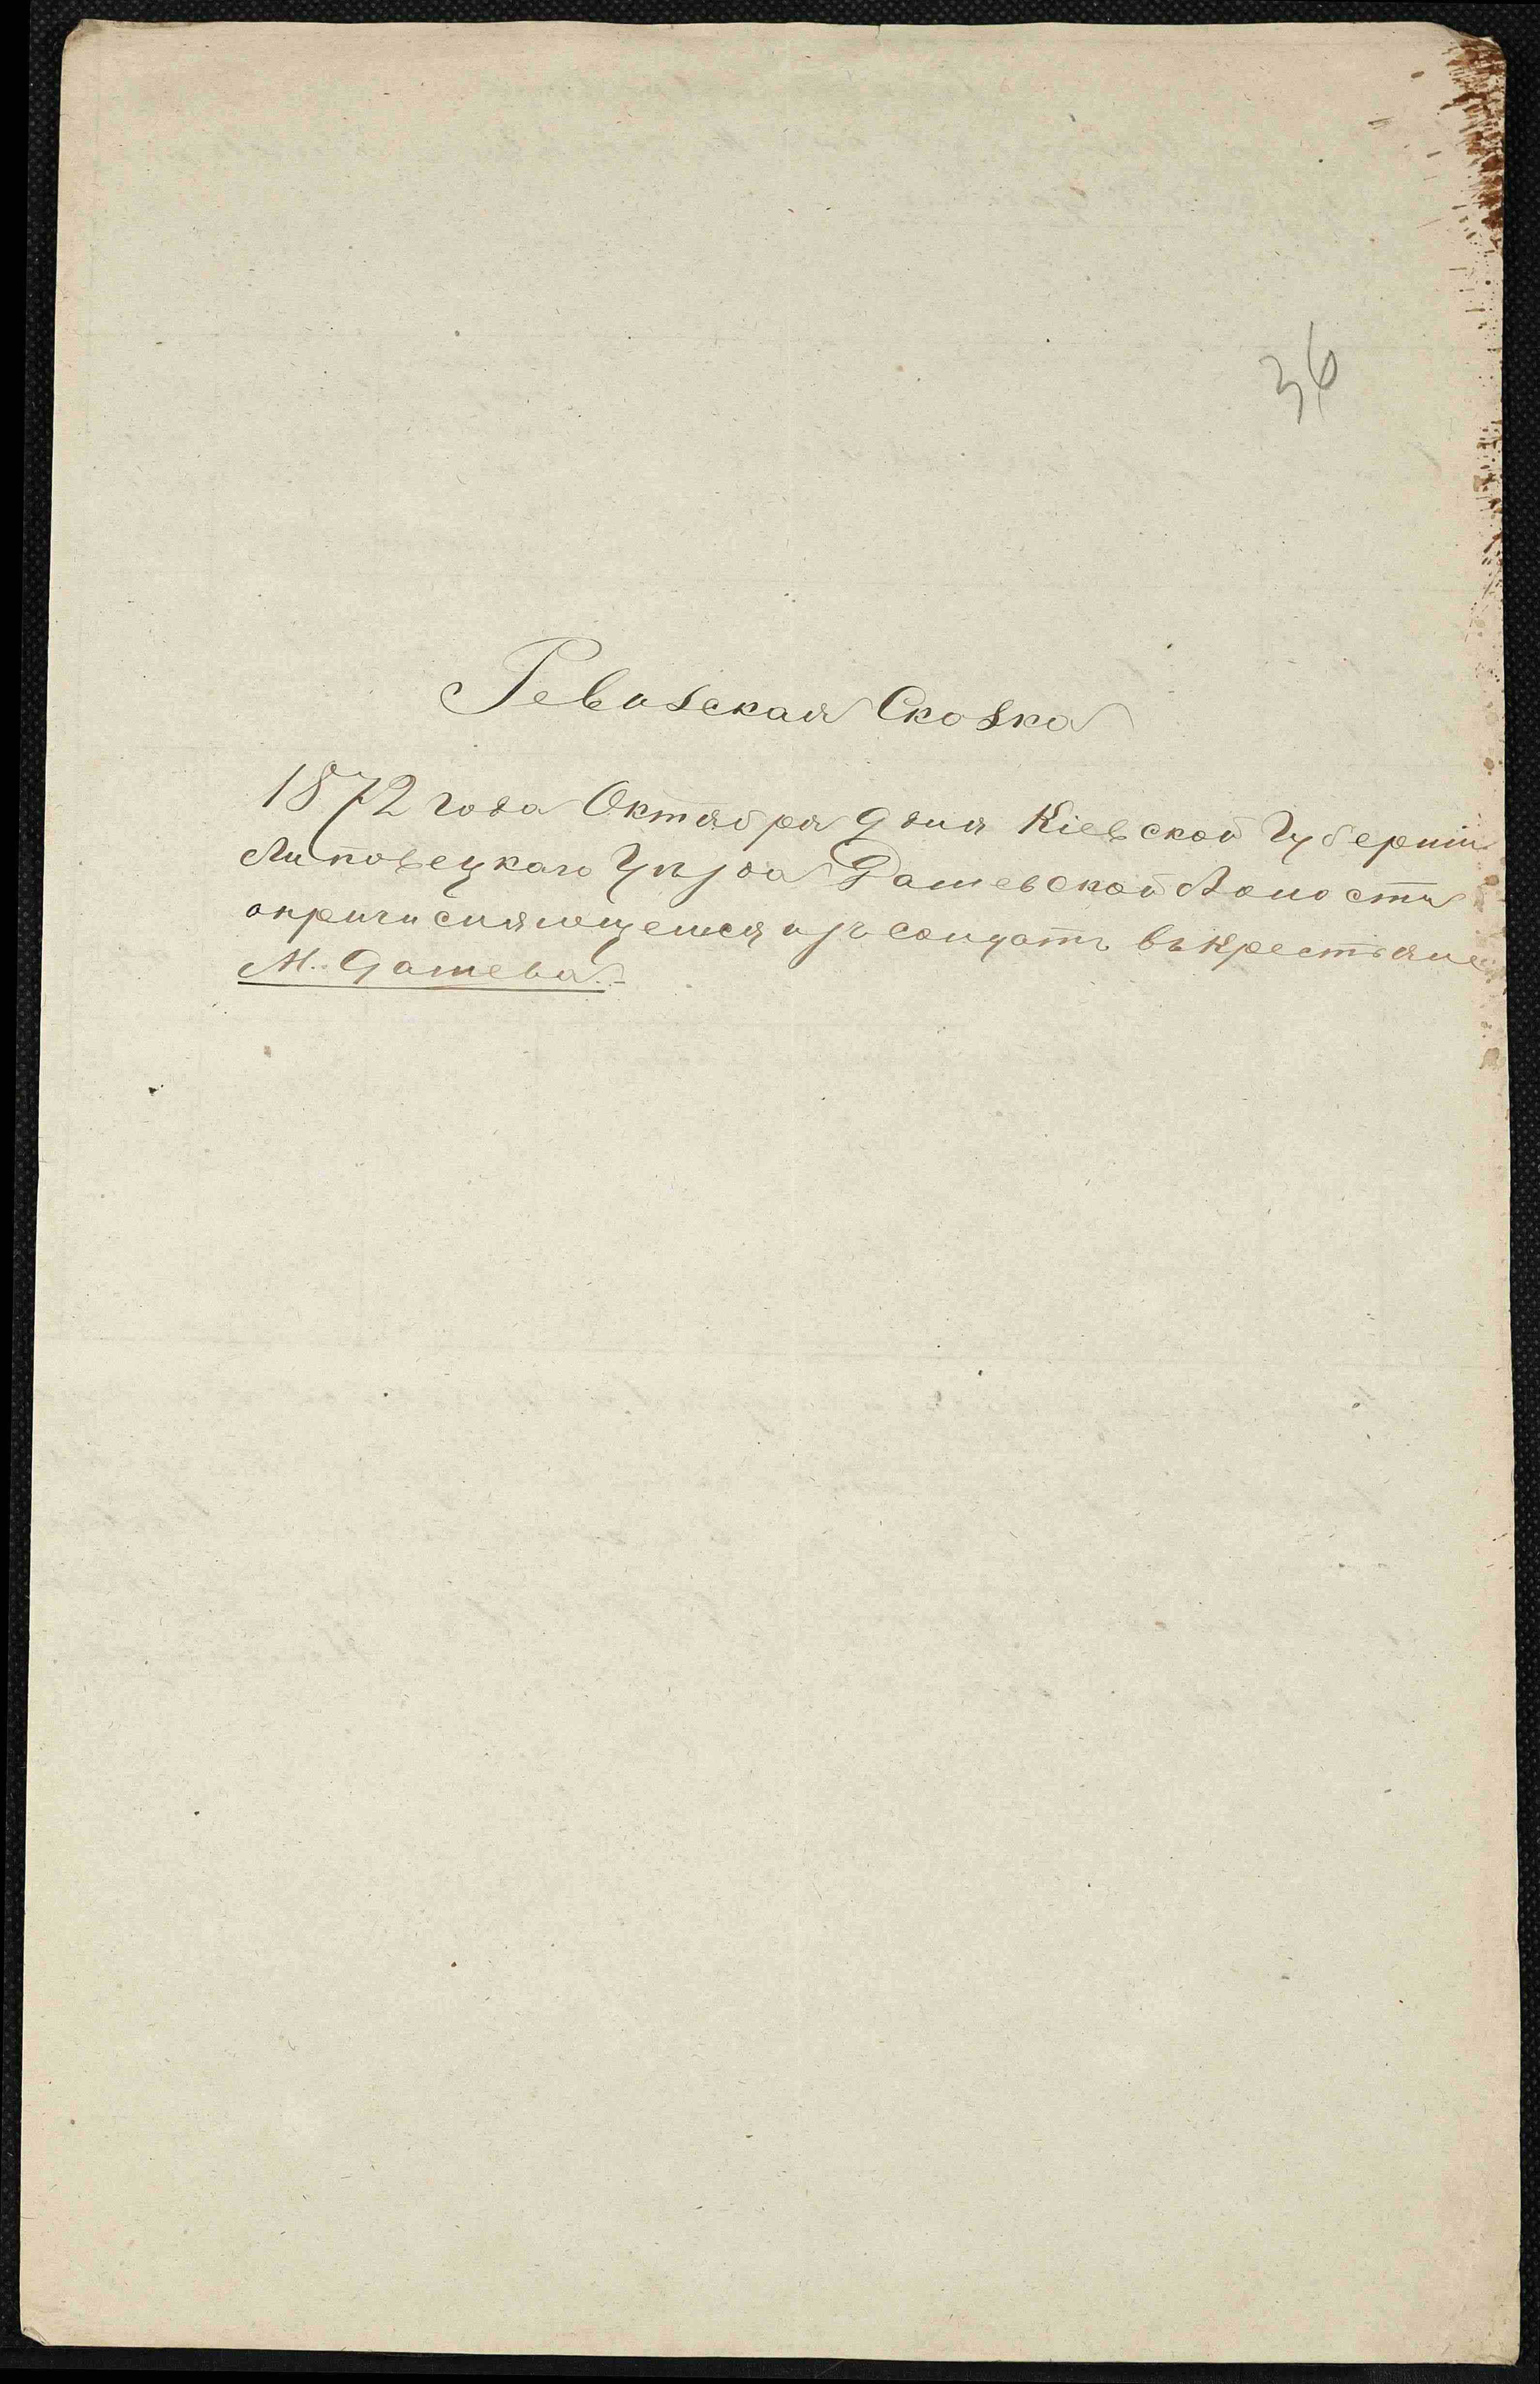 36
Ревизская Сказка
1872 года Октября 9 дня Кіевской Губерніи
Липовецкаго Уѣзда Дашевской Волости
опричисляющемся изъ солдатъ въ крестьяне
М. Дашева.